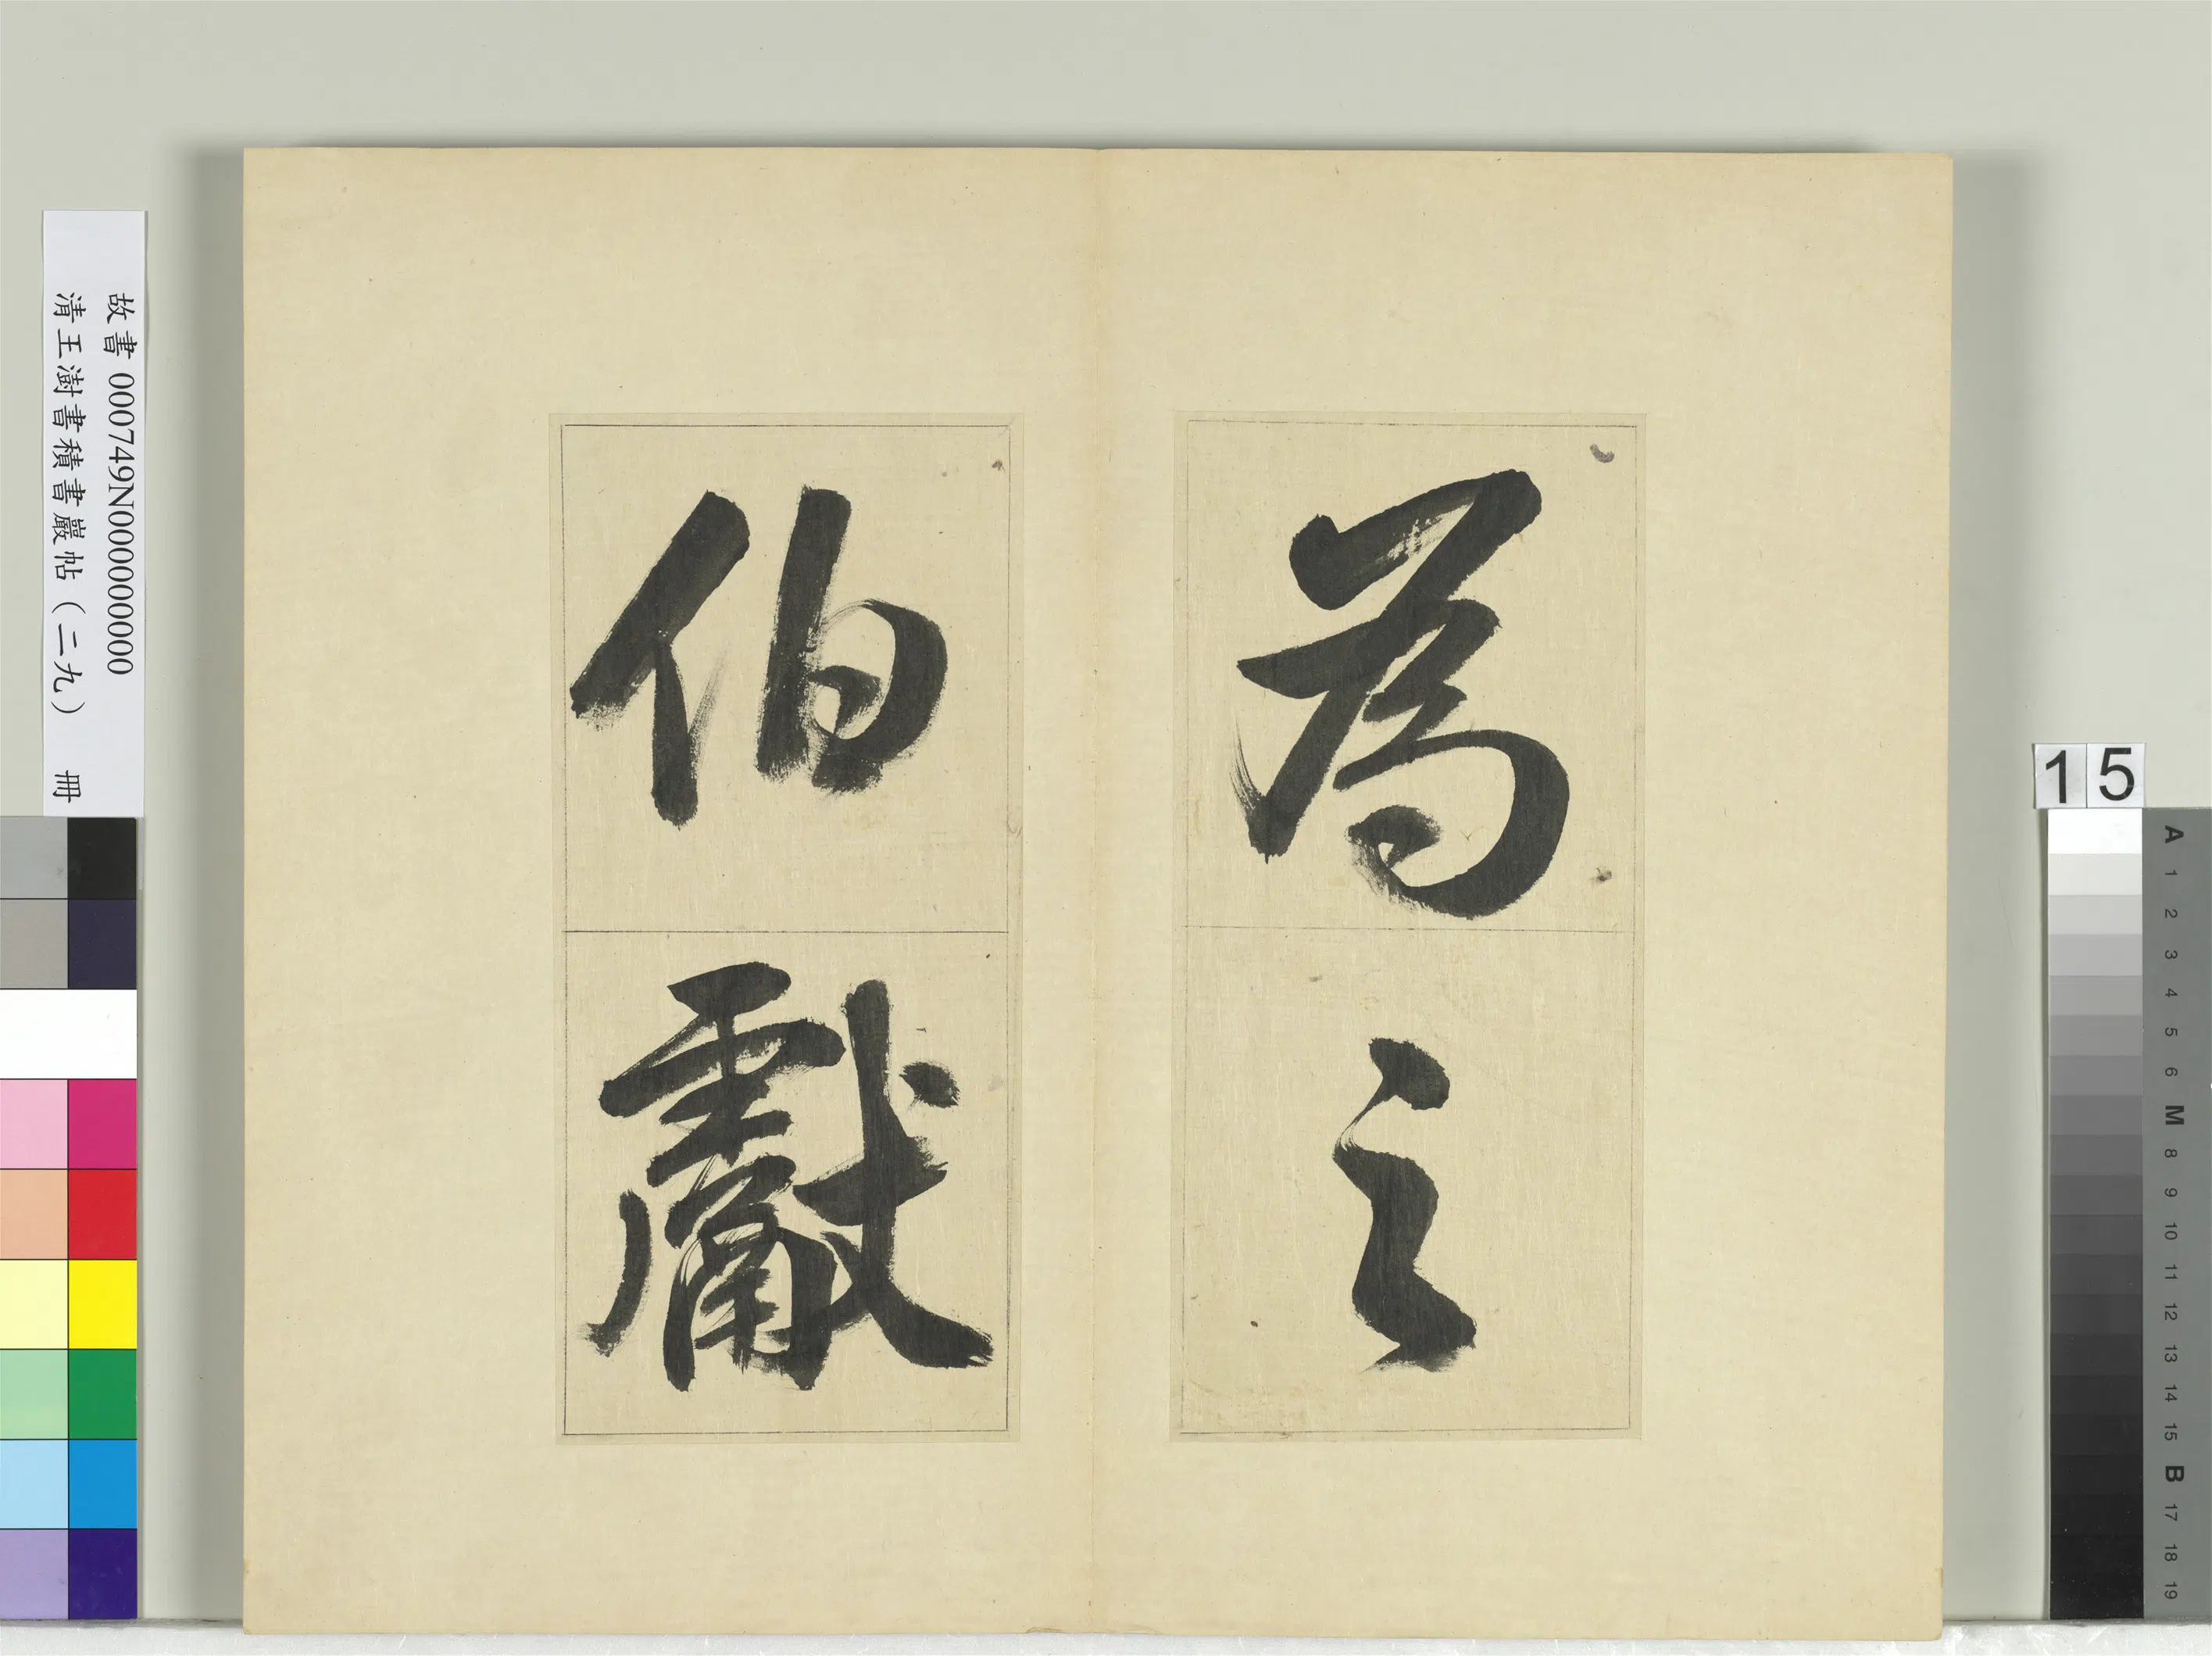 為之
伯獻
故書 000749N000000000
清王澍書積書巖帖(二九) 冊
15
A
1
2
3
4
5
6
M
8
9
10
11
12
13
14
15
B
17
18
19